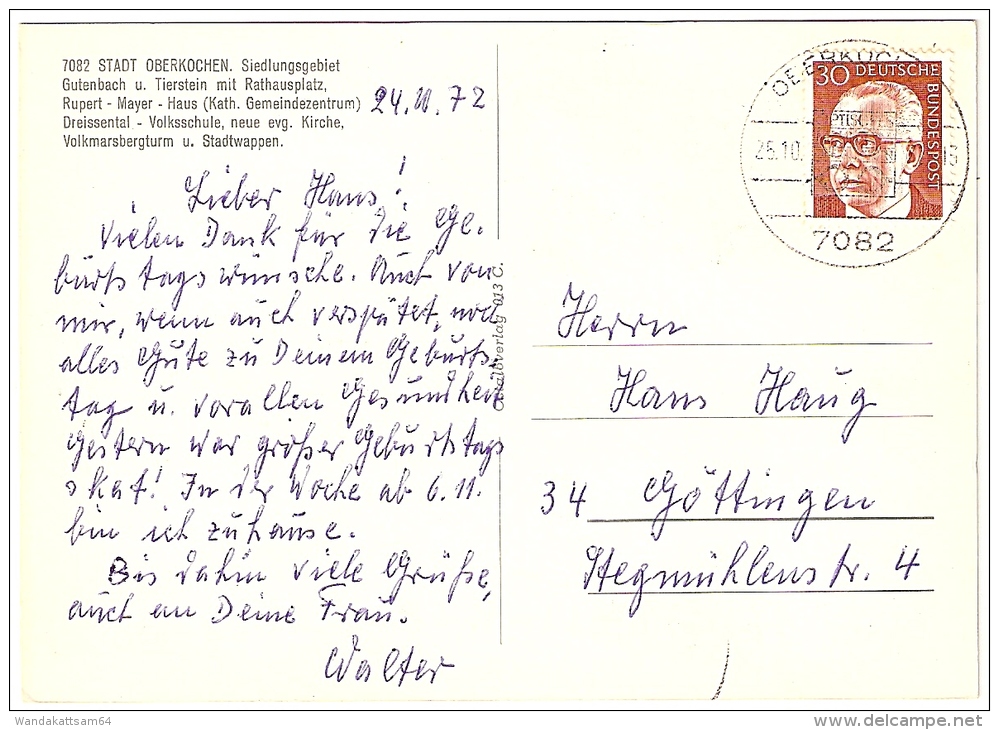 7082 STADT OBERKOCHEN. Siedlungsgebiet
Gutenbach u. Tierstein mit Rathausplatz,
Rupert - Mayer - Haus (Kath. Gemeindezentrum)
Dreissental - Volksschule, neue evg. Kirche,
Volkmarsbergturm u. Stadtwappen.
24.10.72
Lieber Hans!
Vielen Dank für die Ge-
burtstagswünsche. Auch von
mir, wenn auch verspätet, noch
alles Gute zu Deinem Geburts-
tag u. vor allen Gesundheit
Gestern war großer Geburtstags
skat! In der Woche ab 6.11.
bin ich zuhause.
Bis dahin viele Grüße,
auch an Deine Frau.
Walter
013 C.
30 DEUTSCHE
BUNDESPOST
25.10.
7082
Herrn
Hans Haug
34 Göttingen
Stegmühlenstr. 4
Wandakattsam64
www.delcampe.net